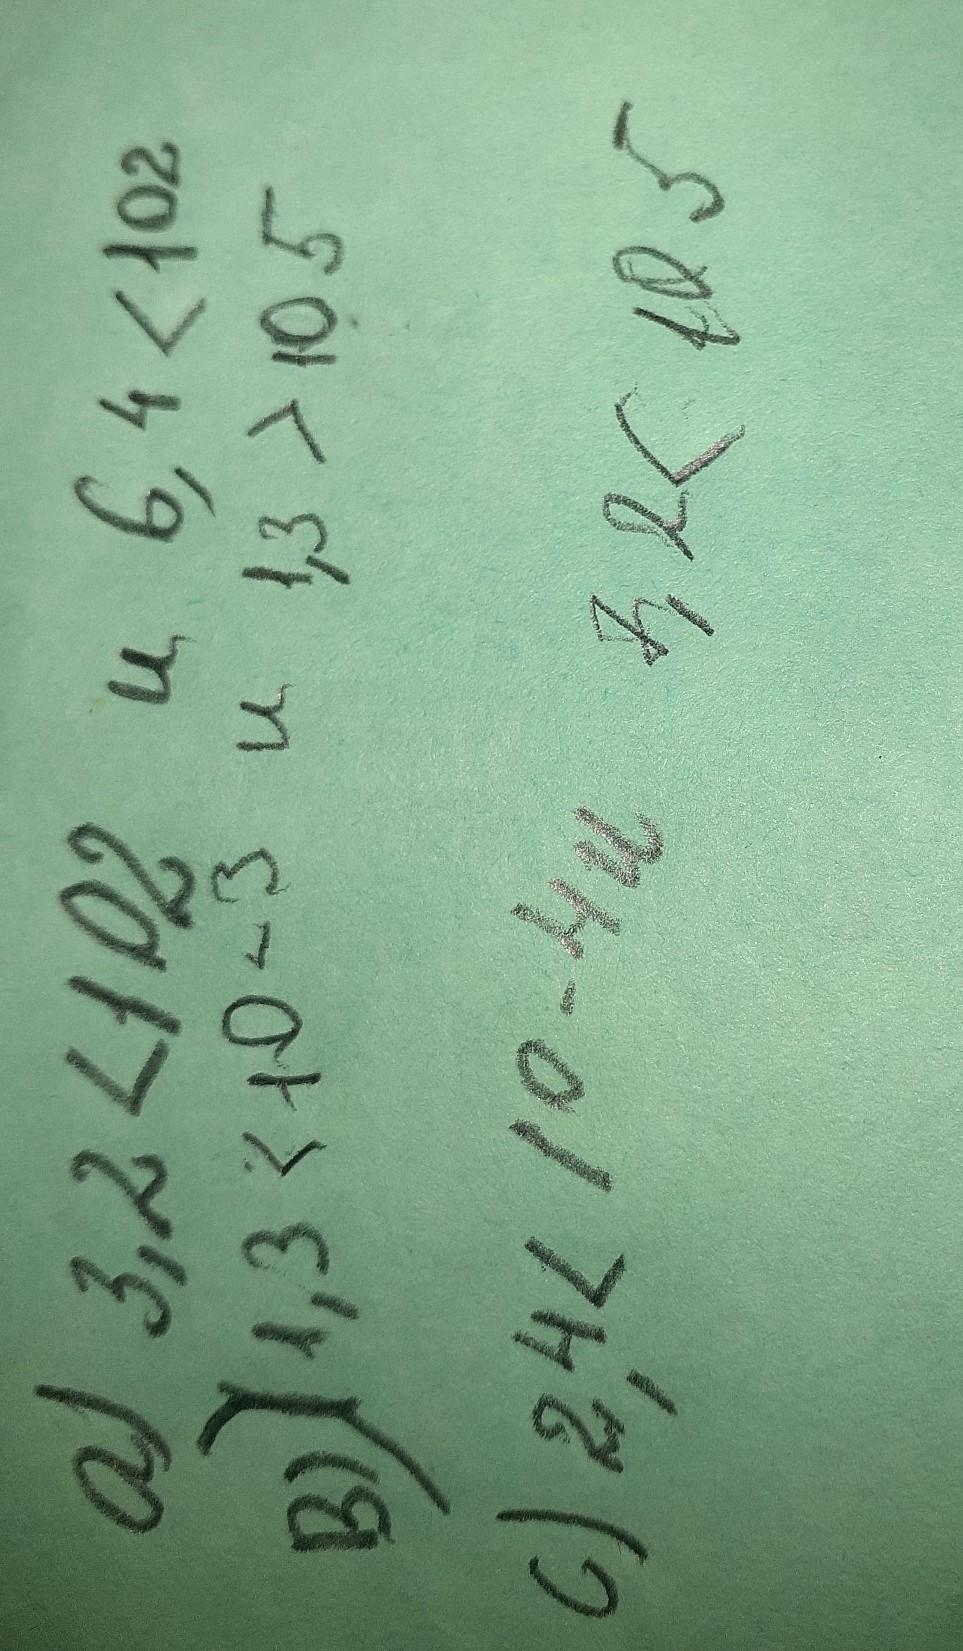 a) 3,2 < 102 и 6,4 < 102
в) 1,3 < 10-3 и 1,3 > 105
c) 2,4 < 10-4 и 2 < 105